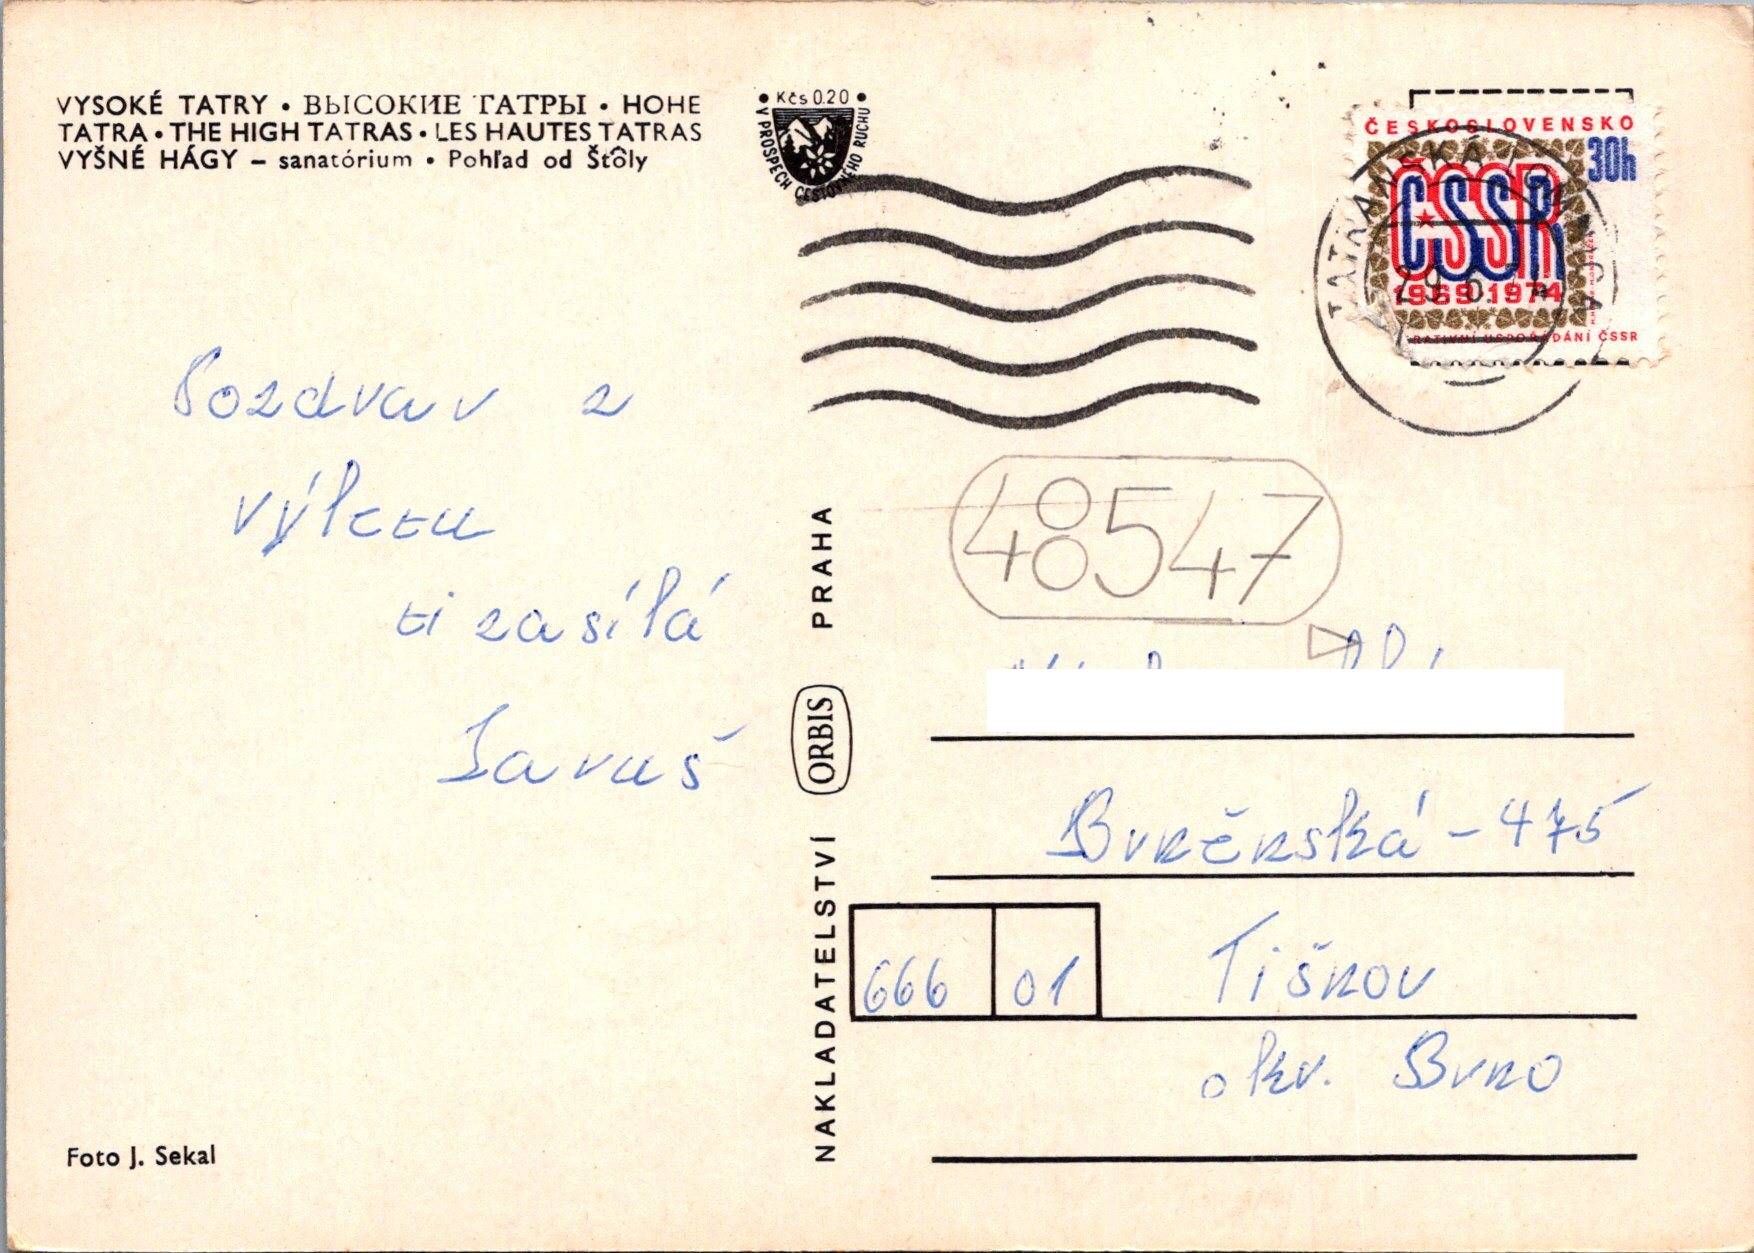 VYSOKÉ TATRY • ВЫСОКИЕ ТАТРЫ • HOHE
TATRA • THE HIGH TATRAS • LES HAUTES TATRAS
VYŠNÉ HÁGY – sanatórium • Pohľad od Štôly
• Kčs 0.20 •
V PROSPECH CESTOVNÉHO RUCHU
ČESKOSLOVENSKO
30h
ČSSR
1969 1974
USPOŘÁDÁNÍ ČSSR
29.6.74
Pozdrav z
výletu
ti zasílá
Jaruš
48547
NAKLADATELSTVÍ ORBIS PRAHA
Brněnská - 475
666 01 Tišnov
okr. Brno
Foto J. Sekal